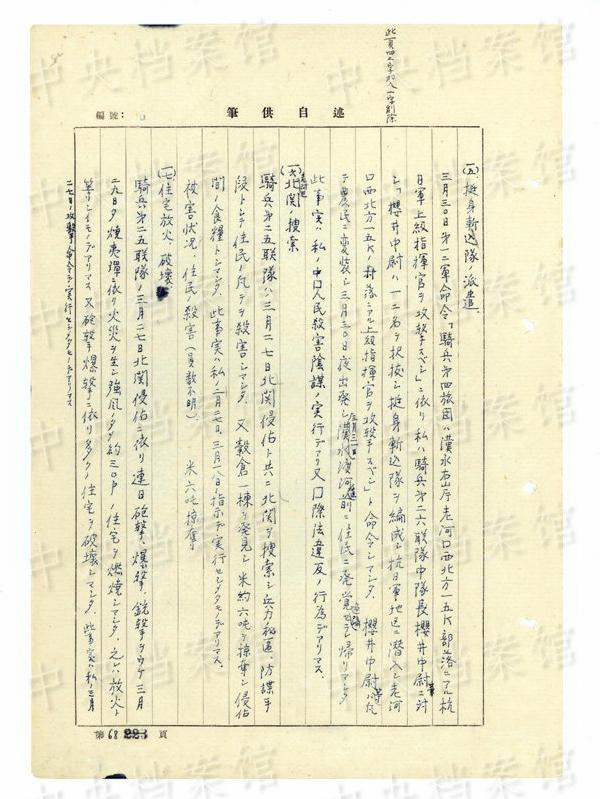 此頁四五字加入一字削除
編號：
筆供自述
(五)、挺身斬込隊ノ派遣、
三月三〇日第一二軍命令「騎兵第四旅団ハ漢水右岸老河口西北方一五K部落ニアル抗
日軍上級指揮官ヲ攻撃スベシ」ニ依リ私ハ騎兵第二六聯隊中隊長櫻井中尉ニ対
シ「櫻井中尉ハ一二名ヲ択抜シ挺身斬込隊ヲ編成シ抗日軍地区ニ潜入シ老河
口西北方一五Kノ村落ニアル上級指揮官ヲ攻撃スベシ」ト命令シマシタ、櫻井中尉等ハ凡
テ農民ニ変装シ三月三〇日夜出発シ漢水渡河前ニ住民ニ発見セラレ帰リマシタ
此事実ハ私ノ中国人民殺害陰謀ノ実行デアリ又国際法違反ノ行為デアリマス、
(六)北関ノ捜索
騎兵第二五联隊ハ三月二七日北関侵佔ト共ニ北関ヲ捜索シ兵力秘匿、防諜手
段トシテ住民ハ凡テヲ殺害シマシタ、又穀倉一棟ヲ発見シ米約六吨ヲ掠奪シ侵佔
間ノ食糧トシマシタ、此事実ハ私ノ三月二七日、三月二八日ノ指示デ実行セシメタモノデアリマス、
被害状況、住民ノ殺害(員数不明)、米六吨掠奪
(七)住宅放火、破壊、
騎兵第二五联隊ノ三月二七日北関侵佔ニ依リ連日砲撃、爆撃、銃撃ヲウケ三月
二九日夕焼夷弾ニ依リ火災ヲ生シ強風ノタメ約三〇戸ノ住宅ヲ燃燒シマシタ、之ハ放火ト
等シイモノデアリマス、又砲撃爆撃ニ依リ多クノ住宅ヲ破壊シマシタ、此事実ハ私ノ三月
二七日ノ攻撃命令デ実行セシメタモノデアリマス
第 68 頁
中央档案馆